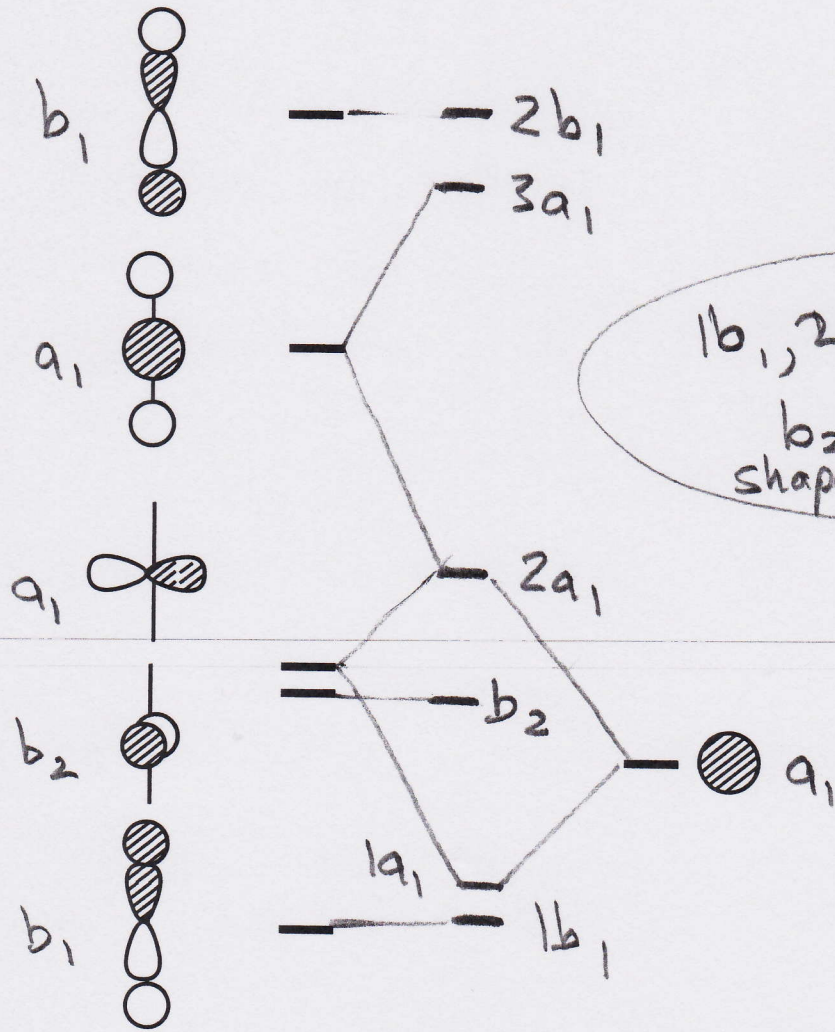 b₁
2b₁
3a₁
a₁
1b₁, 2
b₂
shap
a₁
2a₁
b₂
b₂
a₁
1a₁
b₁
1b₁